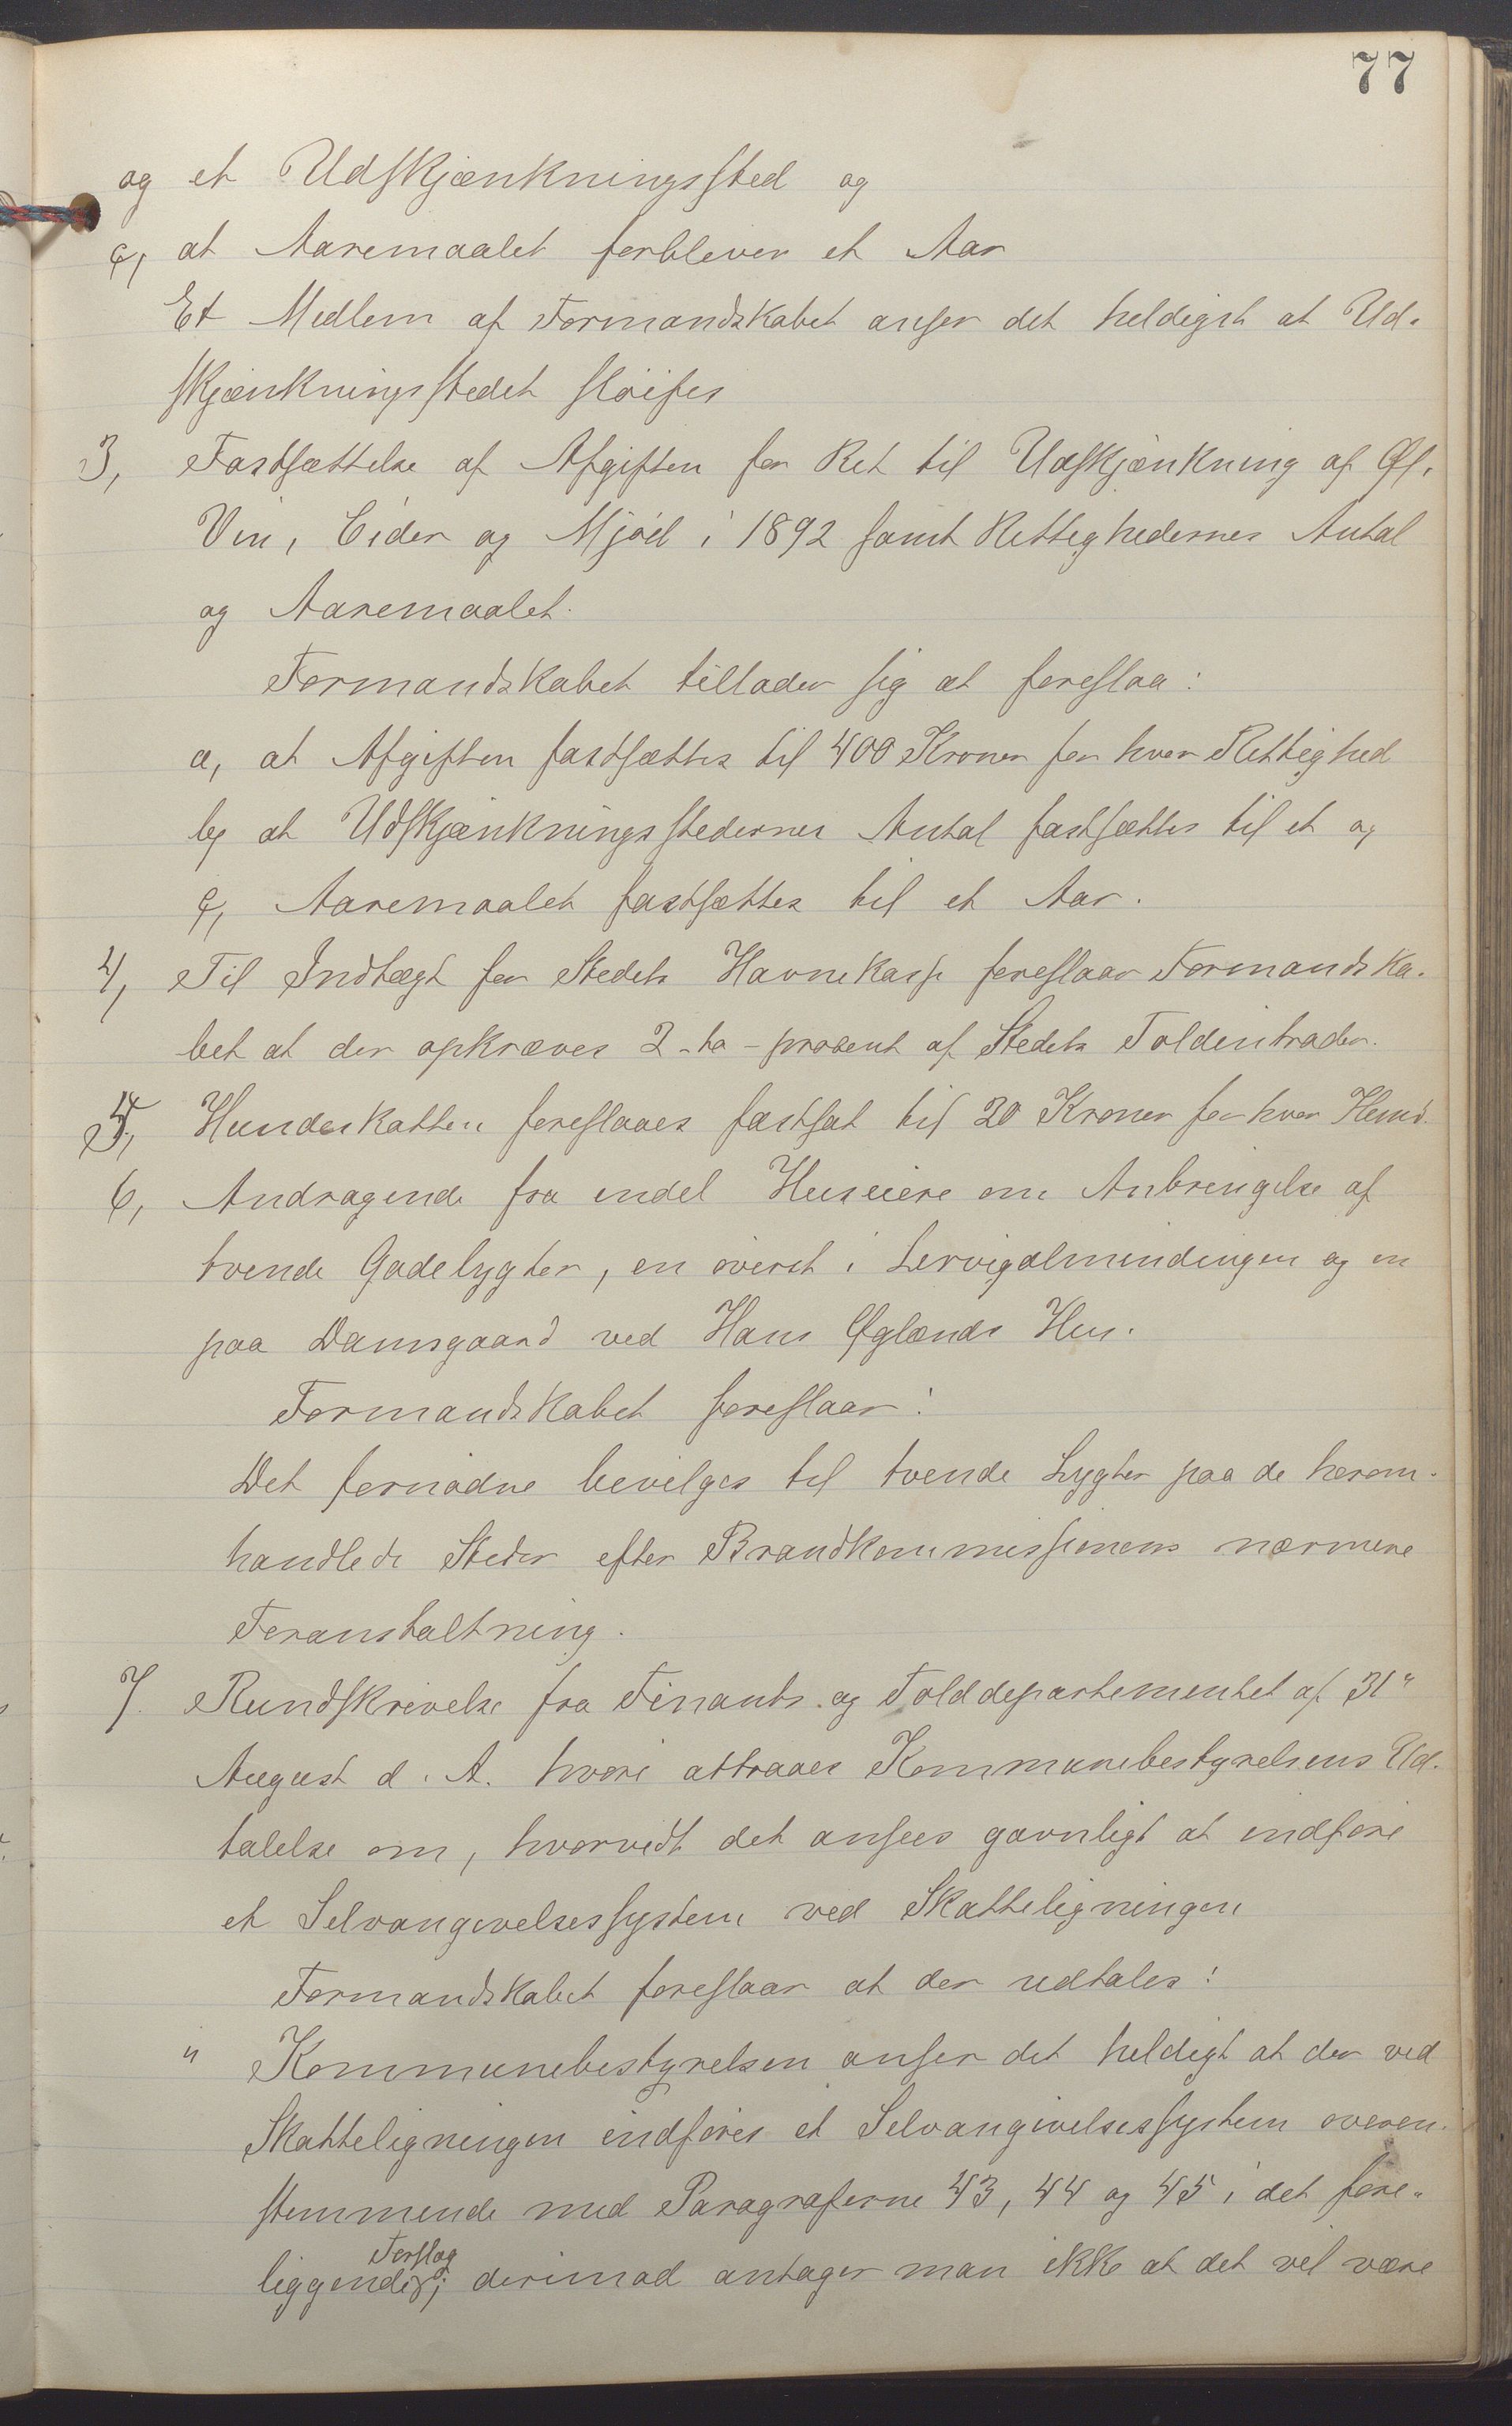 77
og et Udskjænkningssted og
c, at Aaremaalet forbliver et Aar
Et Medlem af Formandskabet anser det heldigst at Ud-
skjænkningsstedet sløifes
3, Fastsættelse af Afgiften for Ret til Udskjænkning af Øl,
Vin, Cider og Mjød i 1892 samt Rettighedernes Antal
og Aaremaalet.
Formandskabet tillader sig at foreslaa:
a, at Afgiften fastsættes til 400 Kroner for hver Rettighed
b, at Udskjænkningsstedernes Antal fastsættes til et og
c, Aaremaalet fastsættes til et Aar.
4, Til Indtægt for Stedets Havnekasse foreslaar Formandska-
bet at der opkræves 2 - to - procent af Stedets Toldintrader.
5, Hundeskatten foreslaaes fastsat til 20 Kroner for hver Hund.
6, Andragende fra endel Huseiere om Anbringelse af
tvende Gadelygter, en øverst i Lervigalmindingen og en
paa Damsgaard ved Hans Øglænds Hus.
Formandskabet foreslaar:
Det fornødne bevilges til tvende Lygter paa de herom-
handlede Steder efter Brandkommissionens nærmere
Foranstaltning.
7. Rundskrivelse fra Finants- og Tolddepartementet af 31"
August d. A. hvori attraaes Kommunebestyrelsens Ud-
talelse om, hvorvidt det ansees gavnligt at indføre
et Selvangivelsessystem ved Skatteligningen
Formandskabet foreslaar at der udtales:
" Kommunebestyrelsen anser det heldigt at der ved
Skatteligningen indføres et Selvangivelsessystem overen-
stemmende med Paragraferne 43, 44 og 45 i det fore-
Forslag
liggende; derimod antager man ikke at det vil være